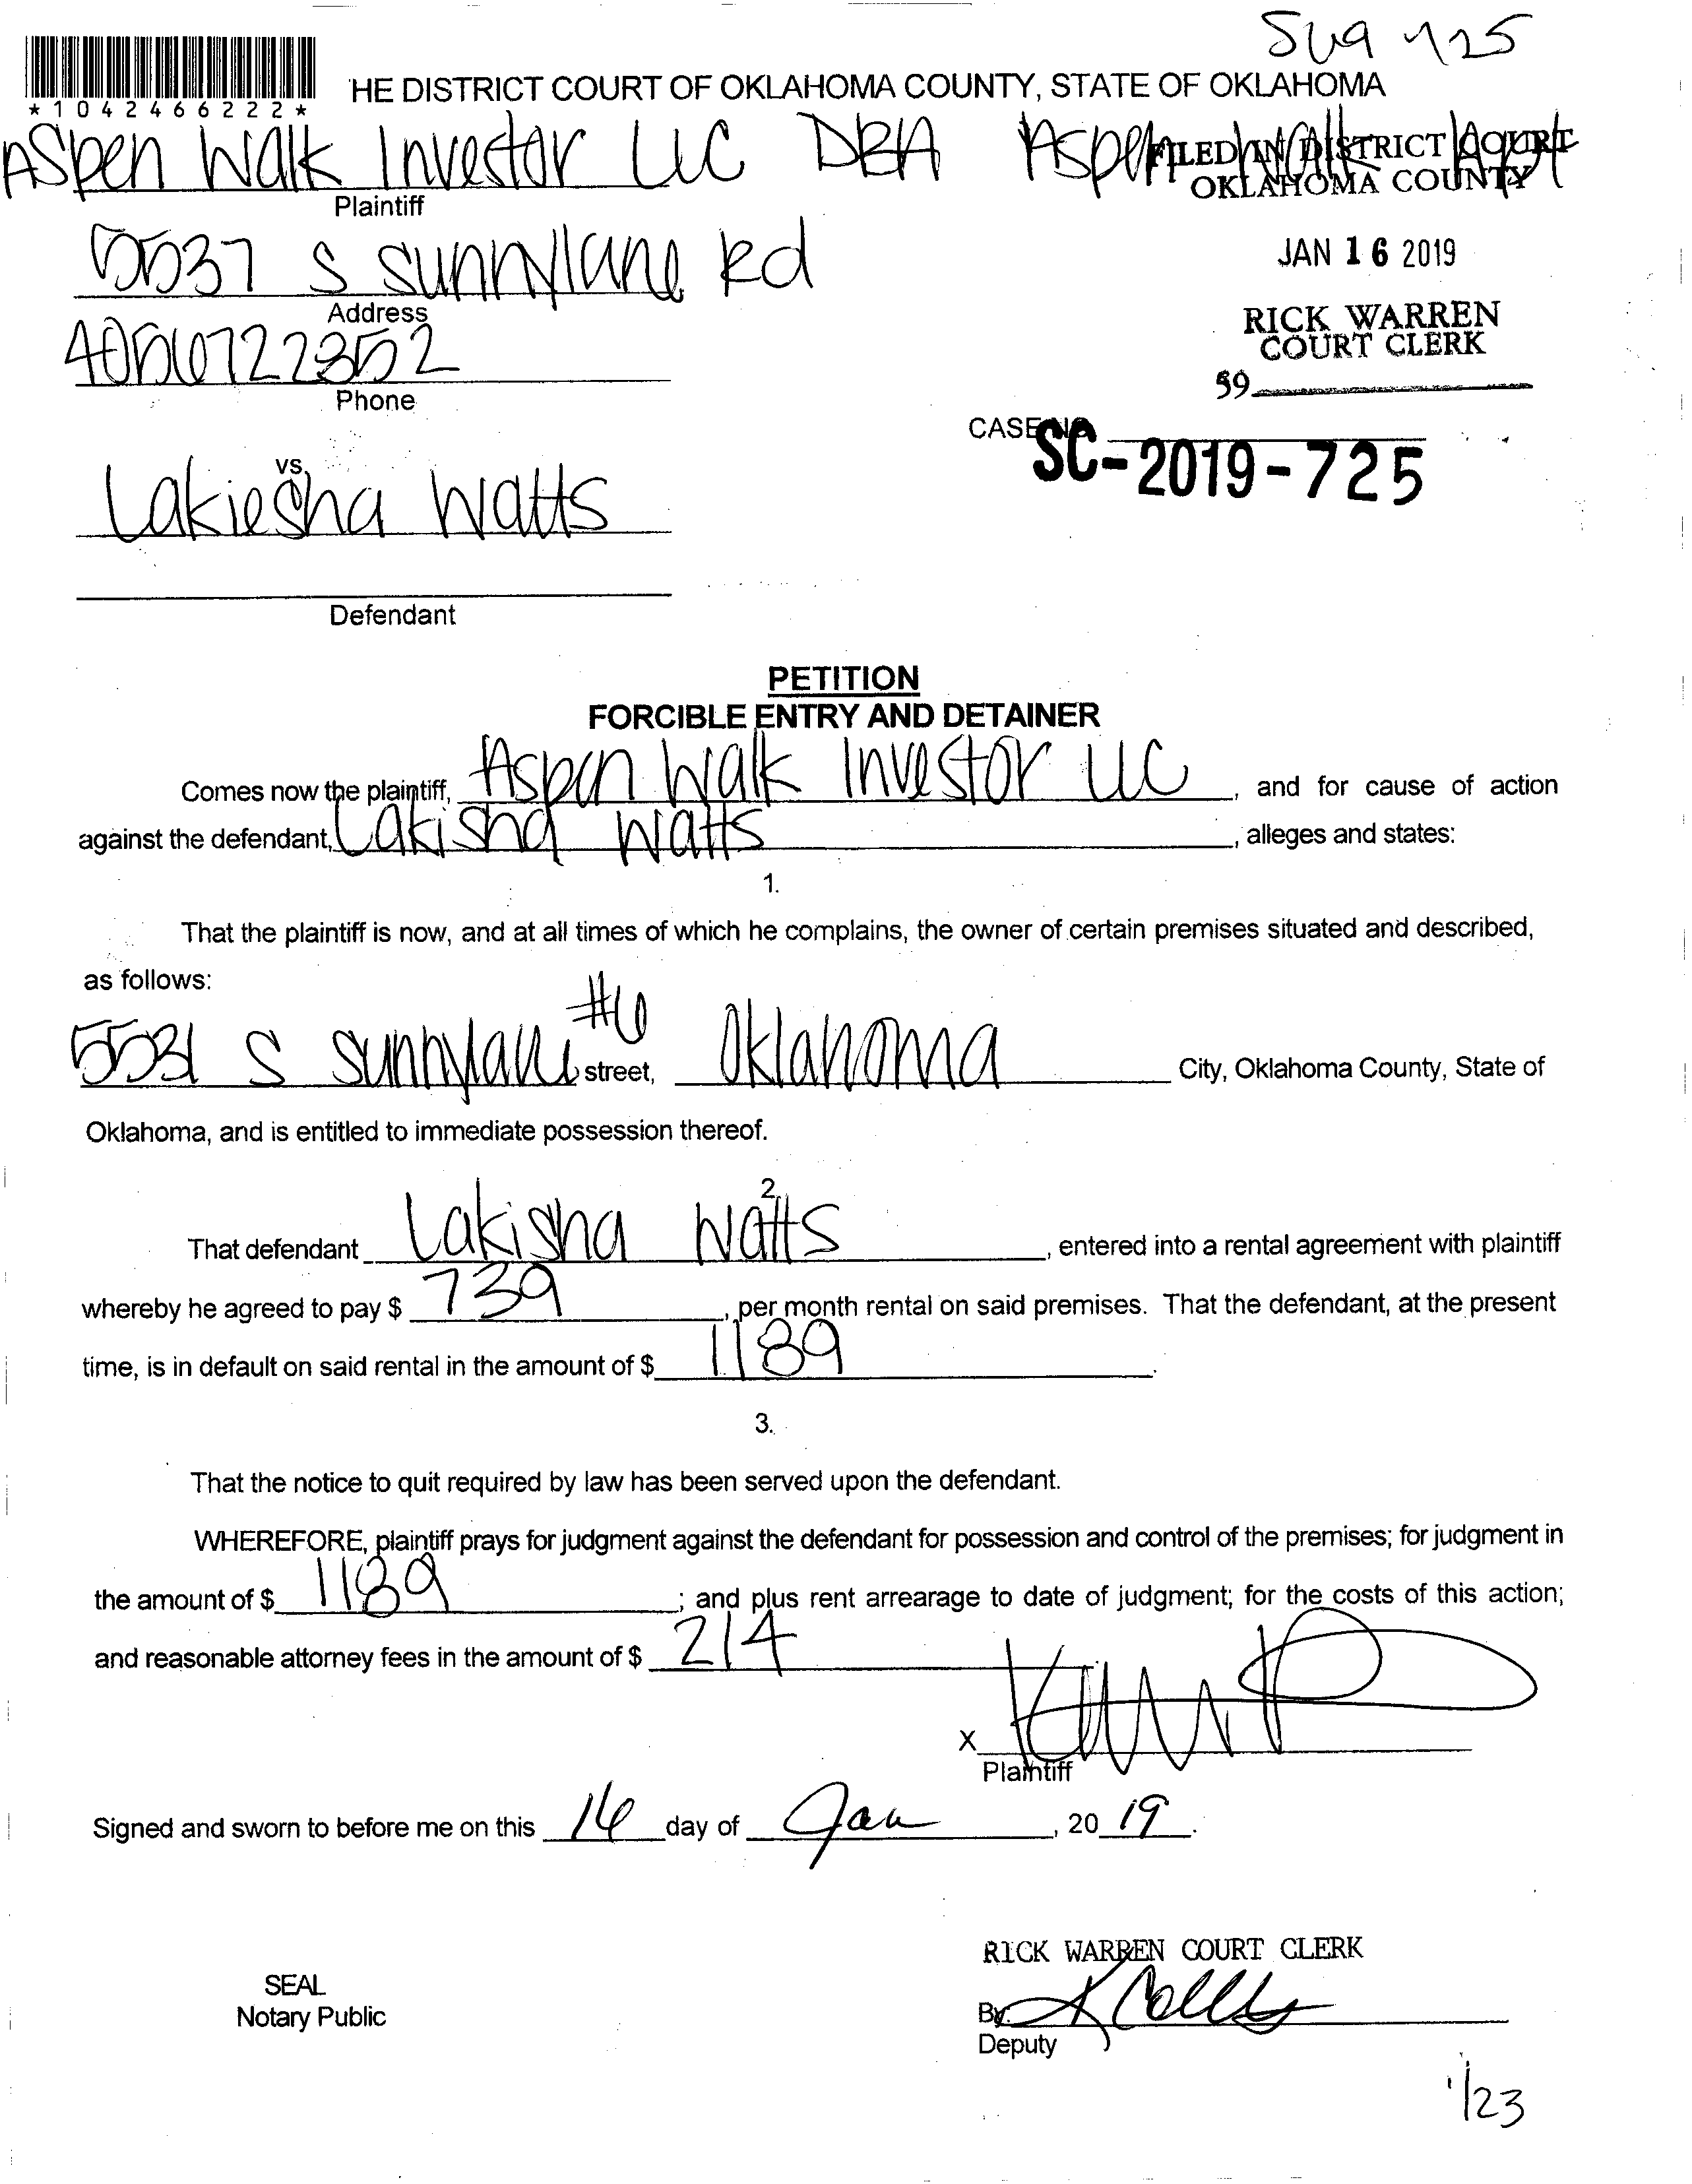 *1042466222*
HE DISTRICT COURT OF OKLAHOMA COUNTY, STATE OF OKLAHOMA
Aspen Walk Investor LLC DBA Aspen Walk Apt
Plaintiff
FILED IN DISTRICT COURT
OKLAHOMA COUNTY
5537 S Sunnylane Rd
Address
JAN 16 2019
4056722352
Phone
RICK WARREN
COURT CLERK
59
CASE NO.
SC-2019-725
vs.
Lakiesha Watts
Defendant
PETITION
FORCIBLE ENTRY AND DETAINER
Comes now the plaintiff, Aspen Walk Investor LLC, and for cause of action
against the defendant, Lakisha Watts, alleges and states:
1.
That the plaintiff is now, and at all times of which he complains, the owner of certain premises situated and described,
as follows:
#6
5531 S Sunnylane street, Oklahoma City, Oklahoma County, State of
Oklahoma, and is entitled to immediate possession thereof.
2.
That defendant Lakisha Watts, entered into a rental agreement with plaintiff
whereby he agreed to pay $ 739, per month rental on said premises. That the defendant, at the present
time, is in default on said rental in the amount of $ 1189.
3.
That the notice to quit required by law has been served upon the defendant.
WHEREFORE, plaintiff prays for judgment against the defendant for possession and control of the premises; for judgment in
the amount of $ 1189; and plus rent arrearage to date of judgment; for the costs of this action;
and reasonable attorney fees in the amount of $ 214
X
Plaintiff
Signed and sworn to before me on this 16 day of Jan, 2019.
RICK WARREN COURT CLERK
SEAL
Notary Public
By:
Deputy
1/23